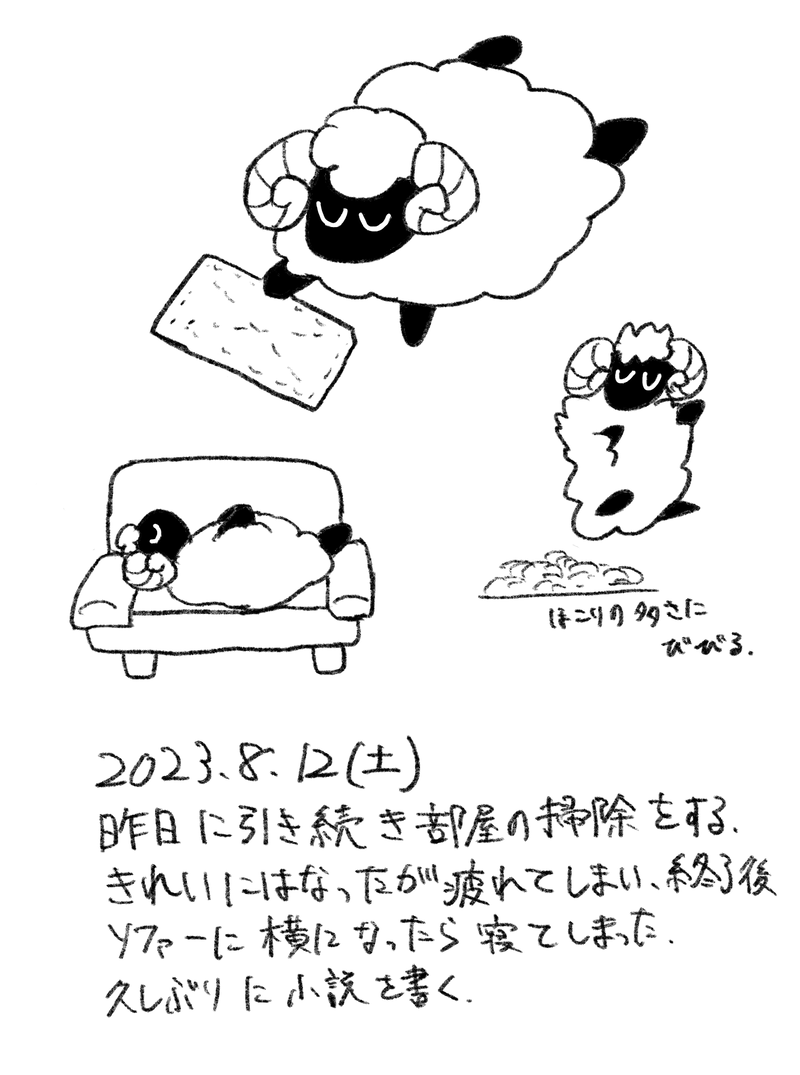 ほこりの多さに
びびる.
2023.8.12(土)
昨日に引き続き部屋の掃除をする.
きれいにはなったが疲れてしまい、終了後
ソファーに横になったら寝てしまった.
久しぶりに小説を書く.